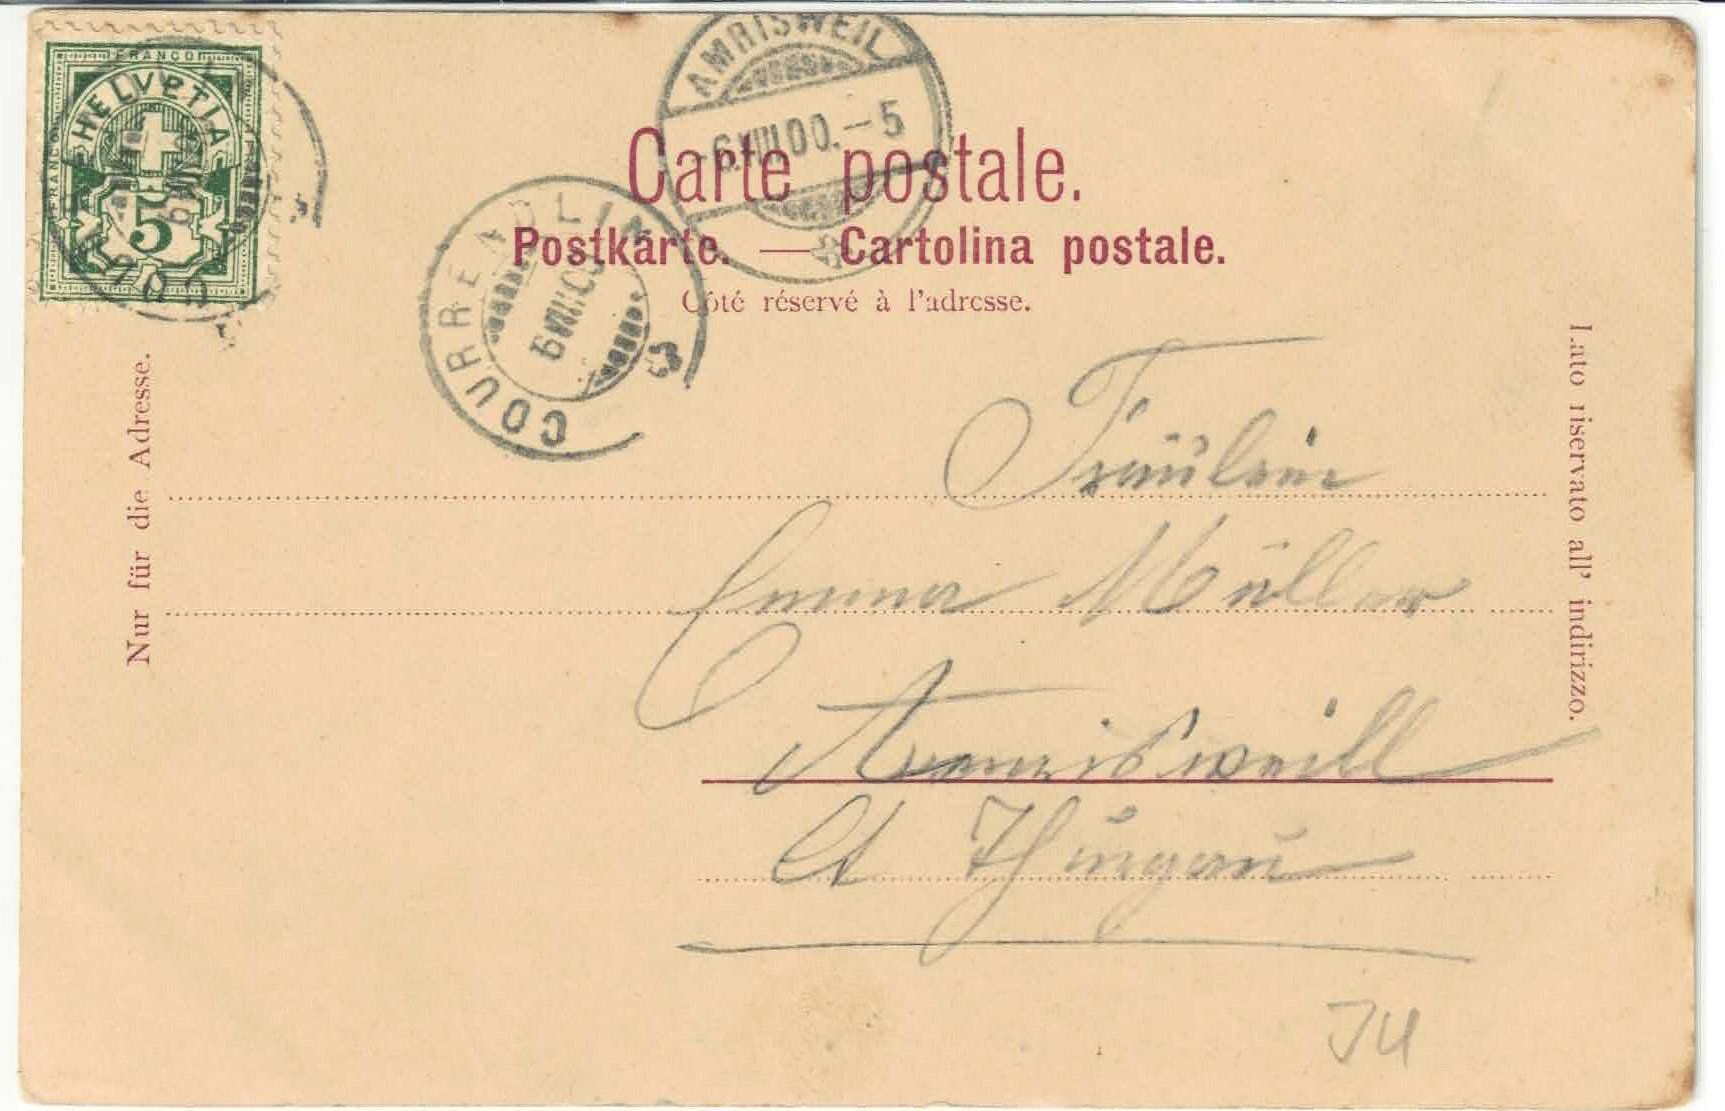 FRANCO
FRANCO
FRANCO
HELVETIA
5
AMRISWEIL
-6.VIII.00.-5
COURRENDLIN
6 VIII 00
Carte postale.
Postkarte. — Cartolina postale.
Côté réservé à l'adresse.
Nur für die Adresse.
Lato riservato all' indirizzo.
Fräulein
Emma Müller
Amrisweill
Ct Thurgau
JU